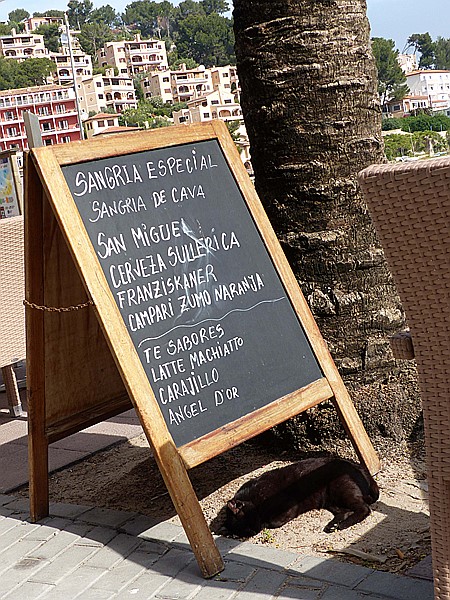 SANGRIA ESPECIAL
SANGRIA DE CAVA
SAN MIGUEL
CERVEZA SULLERICA
FRANZISKANER
CAMPARI ZUMO NARANJA
TE SABORES
LATTE MACHIATTO
CARAJILLO
ANGEL D'OR